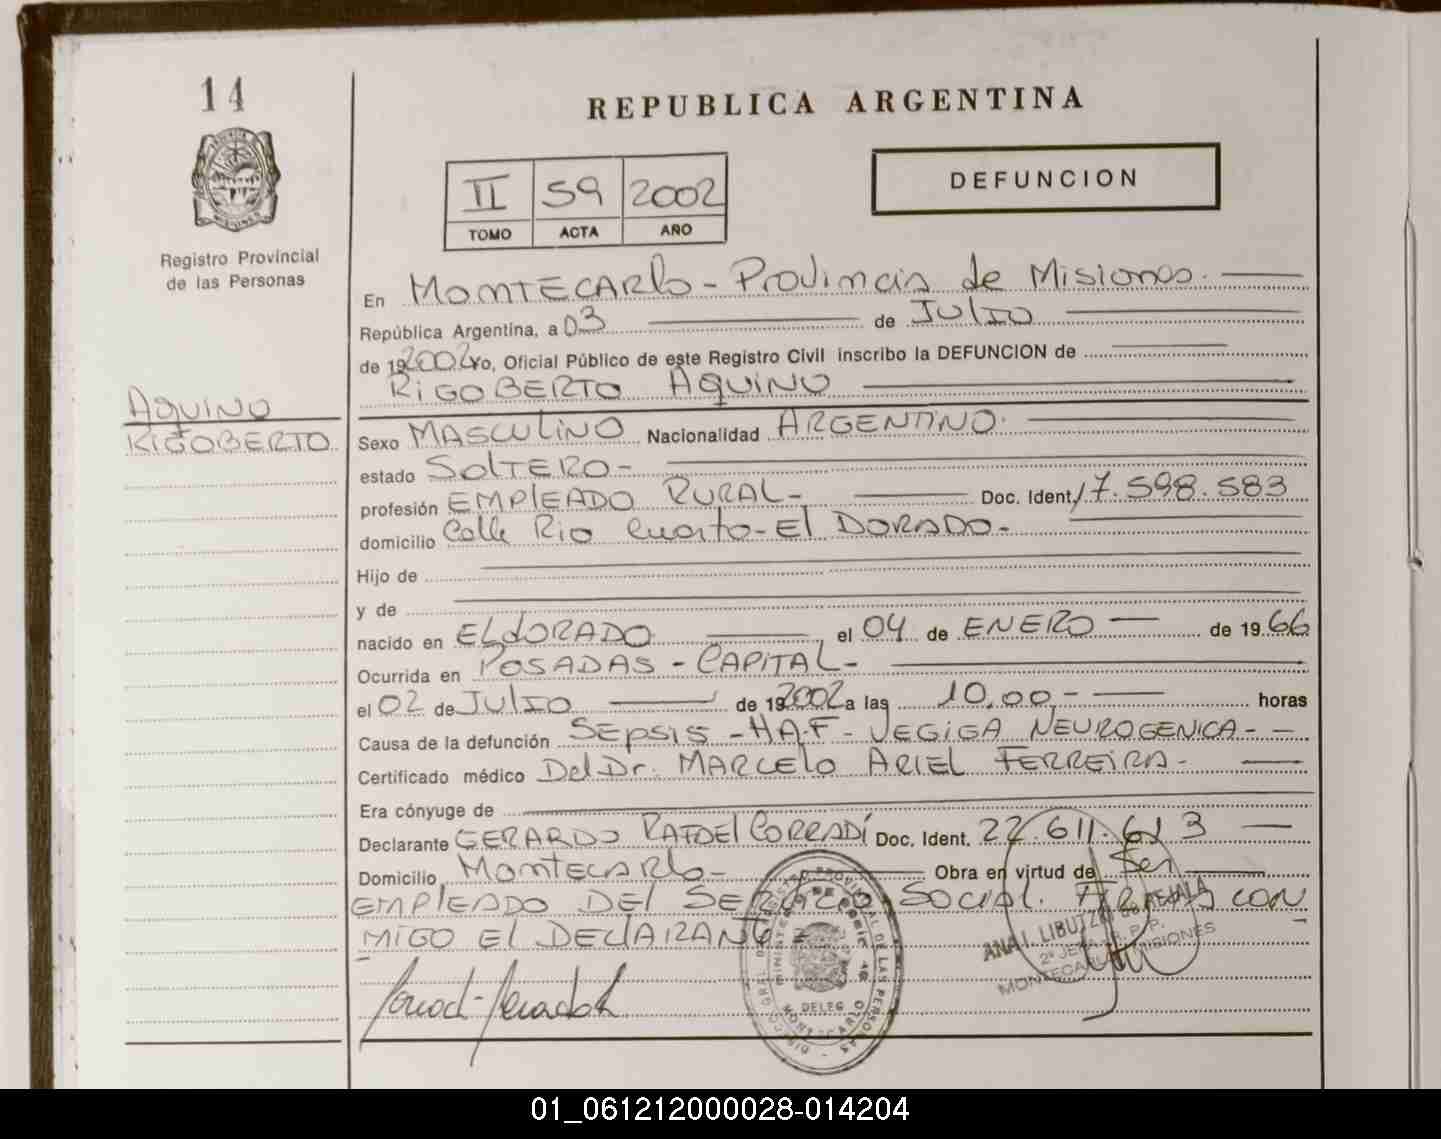 14
REPUBLICA ARGENTINA
II 59 2002
TOMO ACTA AÑO
DEFUNCION
Registro Provincial
de las Personas
En MONTECARlo - Provincia de Misiones.
República Argentina, a 03 de JULIO
de 192002 Yo, Oficial Público de este Registro Civil inscribo la DEFUNCION de
RIGOBERTO AQUINO
AQUINO
RIGOBERTO
Sexo MASCULINO Nacionalidad ARGENTINO.
estado SOLTERO -
profesión EMPLEADO RURAL - Doc. Ident. 17.598.583
domicilio Calle Rio Cuarto - El DORADO -
Hijo de
y de
nacido en ELDORADO el 04 de ENERO de 1966
Ocurrida en POSADAS - CAPITAL -
el 02 de JULIO de 192002 a las 10,00 - horas
Causa de la defunción SEPSIS - HAF - VEGIGA NEUROGENICA - -
Certificado médico Del Dr. MARCELO ARIEL FERREIRA -
Era cónyuge de
Declarante GERARDO RAFAEL CORRADÍ Doc. Ident. 22.611.613
Domicilio Montecarlo - Obra en virtud de Ser
EMPLEADO DEL SERVICIO SOCIAL. FIRMA CON
MIGO El DECLARANTE
DELEG
MONTECARLO
ANA I. LIBUTZKI de AYALA
MONTECARLO MISIONES
01_061212000028-014204